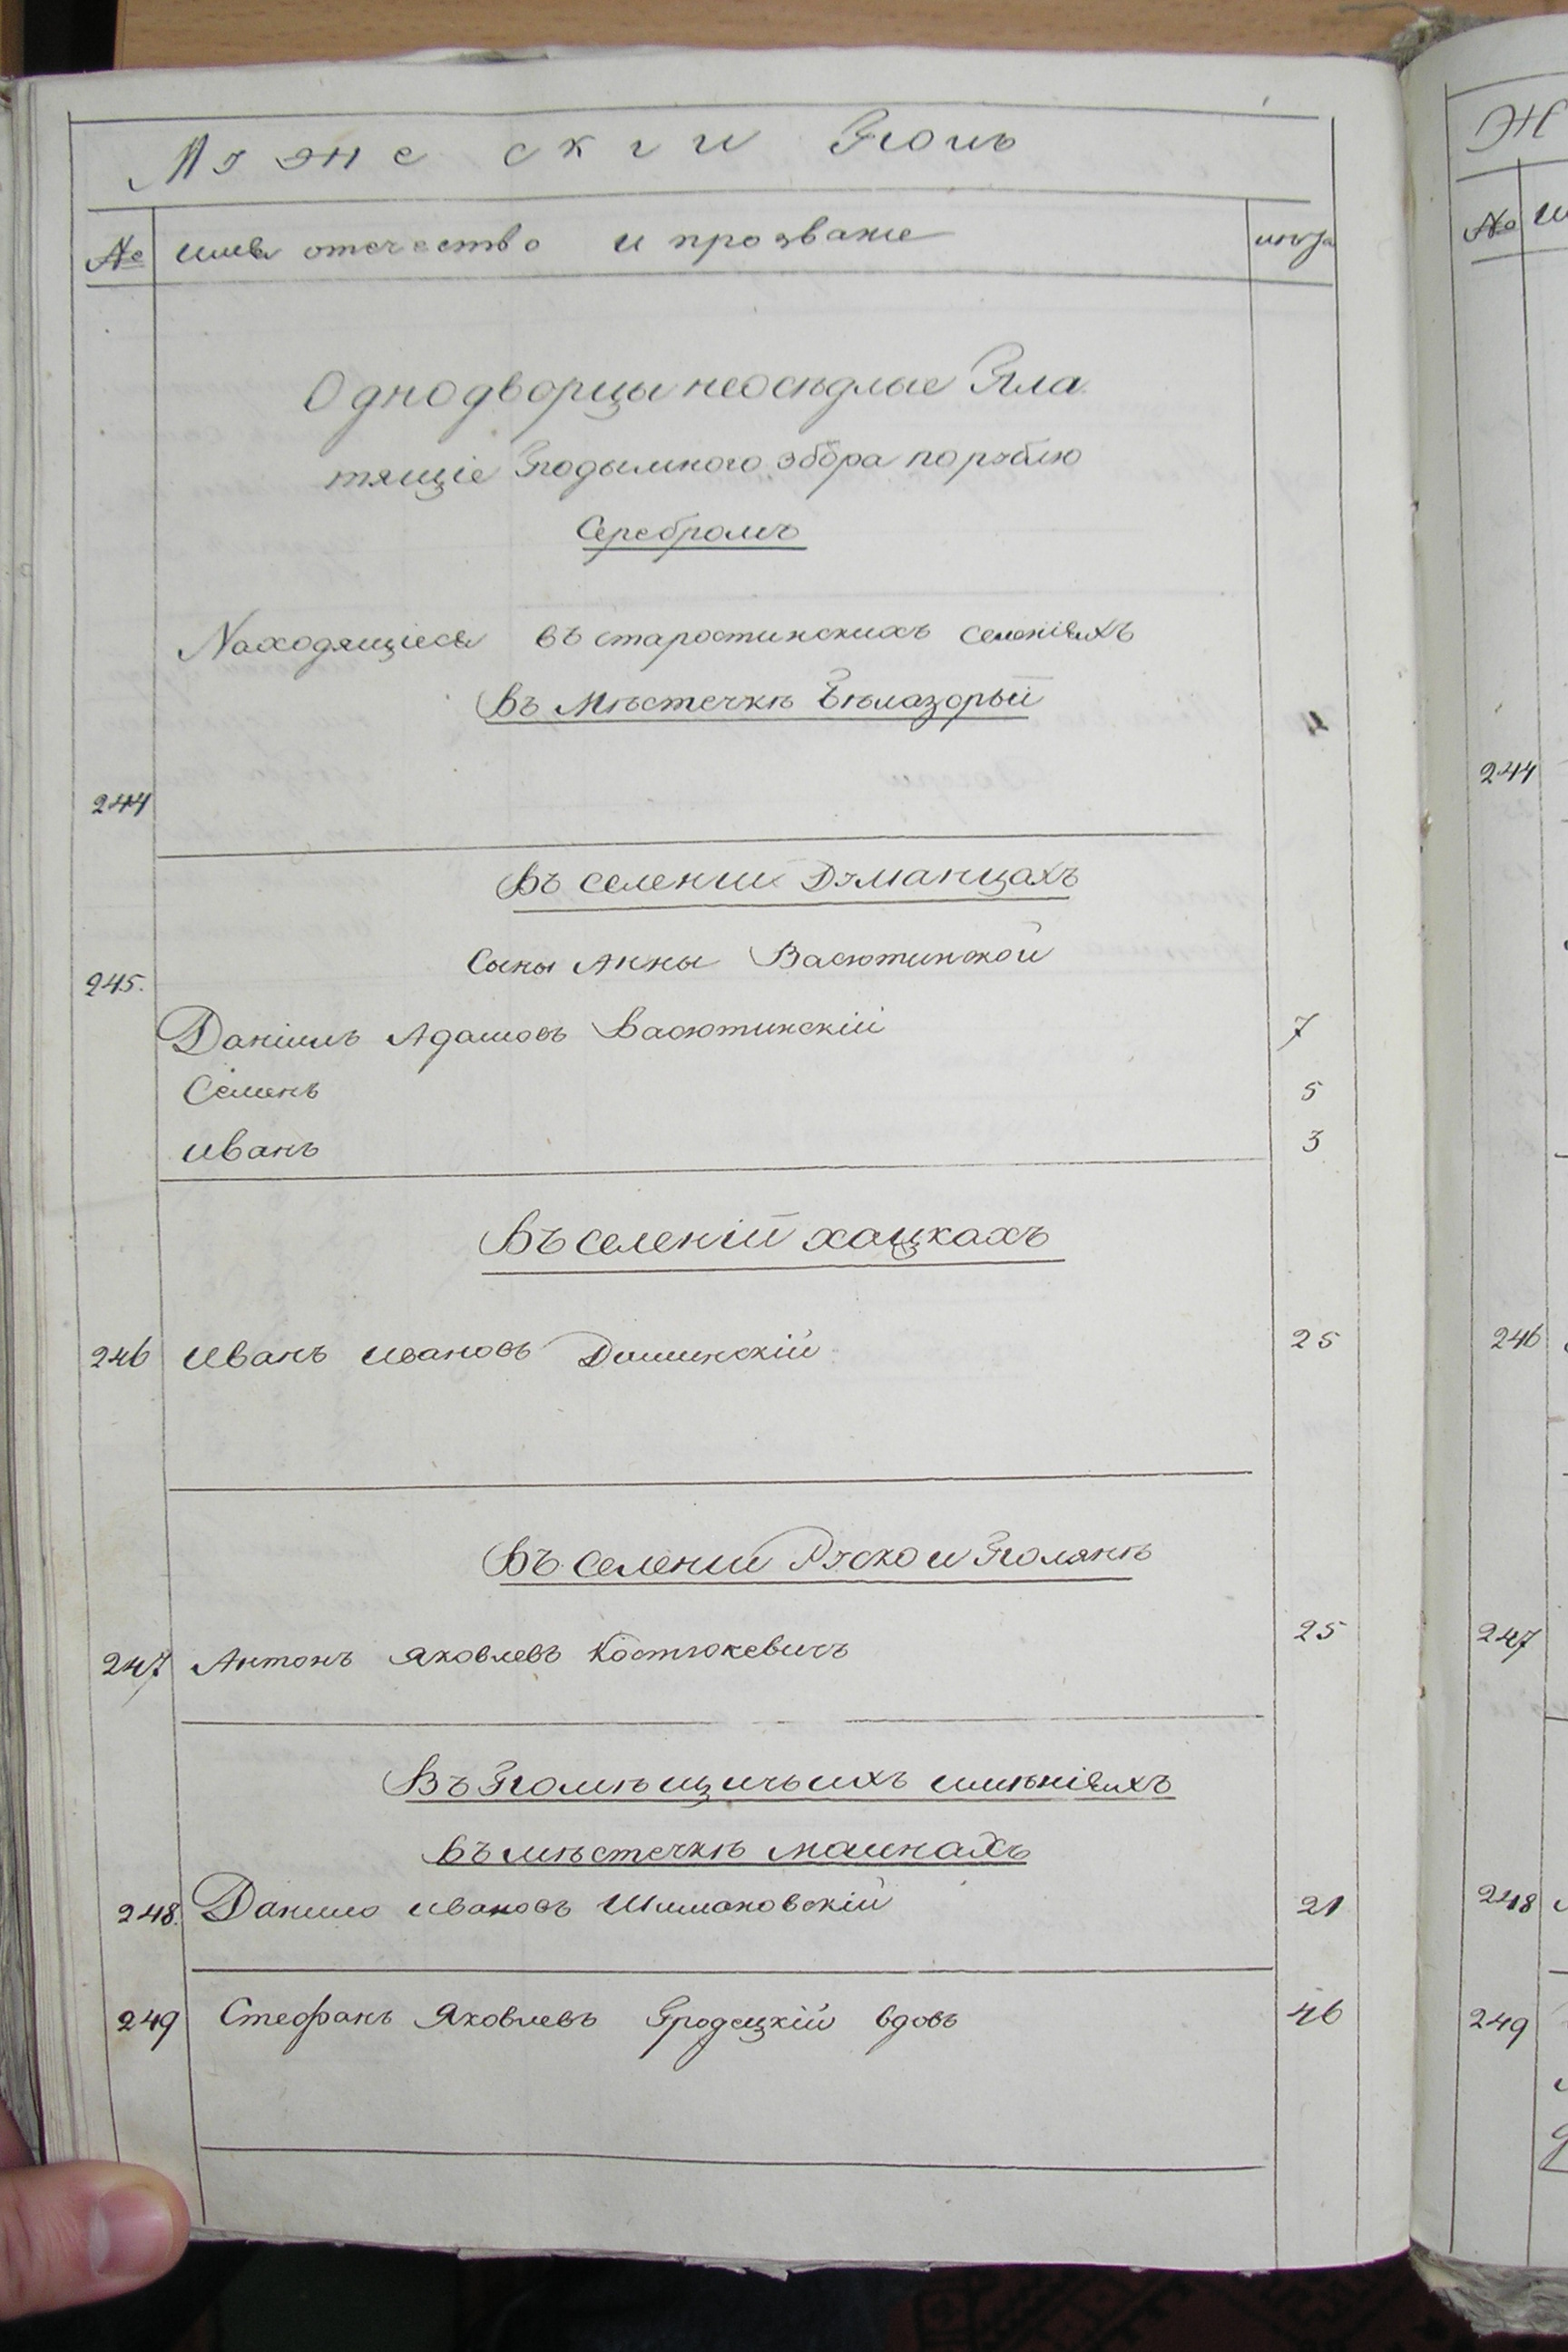 Мужескій Полъ
№ имя отечество и прозвание лѣта
Однодворцы неосѣдлые Пла
тящіе Подымного збора по рублю
Серебромъ
Находящіеся въ старостинскихъ селеніяхъ
Въ Мѣстечкѣ Бѣлазорьй
244
Въ селении Думанцахъ
Сыны Анны Васютинской
245.
Даніилъ Адамовъ Васютинскій 7
Семенъ 5
Иванъ 3
Въ селеній хацкахъ
246 Иванъ Ивановъ Дишинскій 25
Въ Селении Руской Полянѣ
247 Антонъ Яковлевъ Костюкевичъ 25
Въ Помѣщичьихъ имѣніяхъ
Въ мѣстечкѣ мошнахъ
248. Данило Ивановъ Шимановскій 21
249 Стефанъ Яковлевъ Гродецкій вдовъ 46
Ж
№ и
244
246
247
248
249